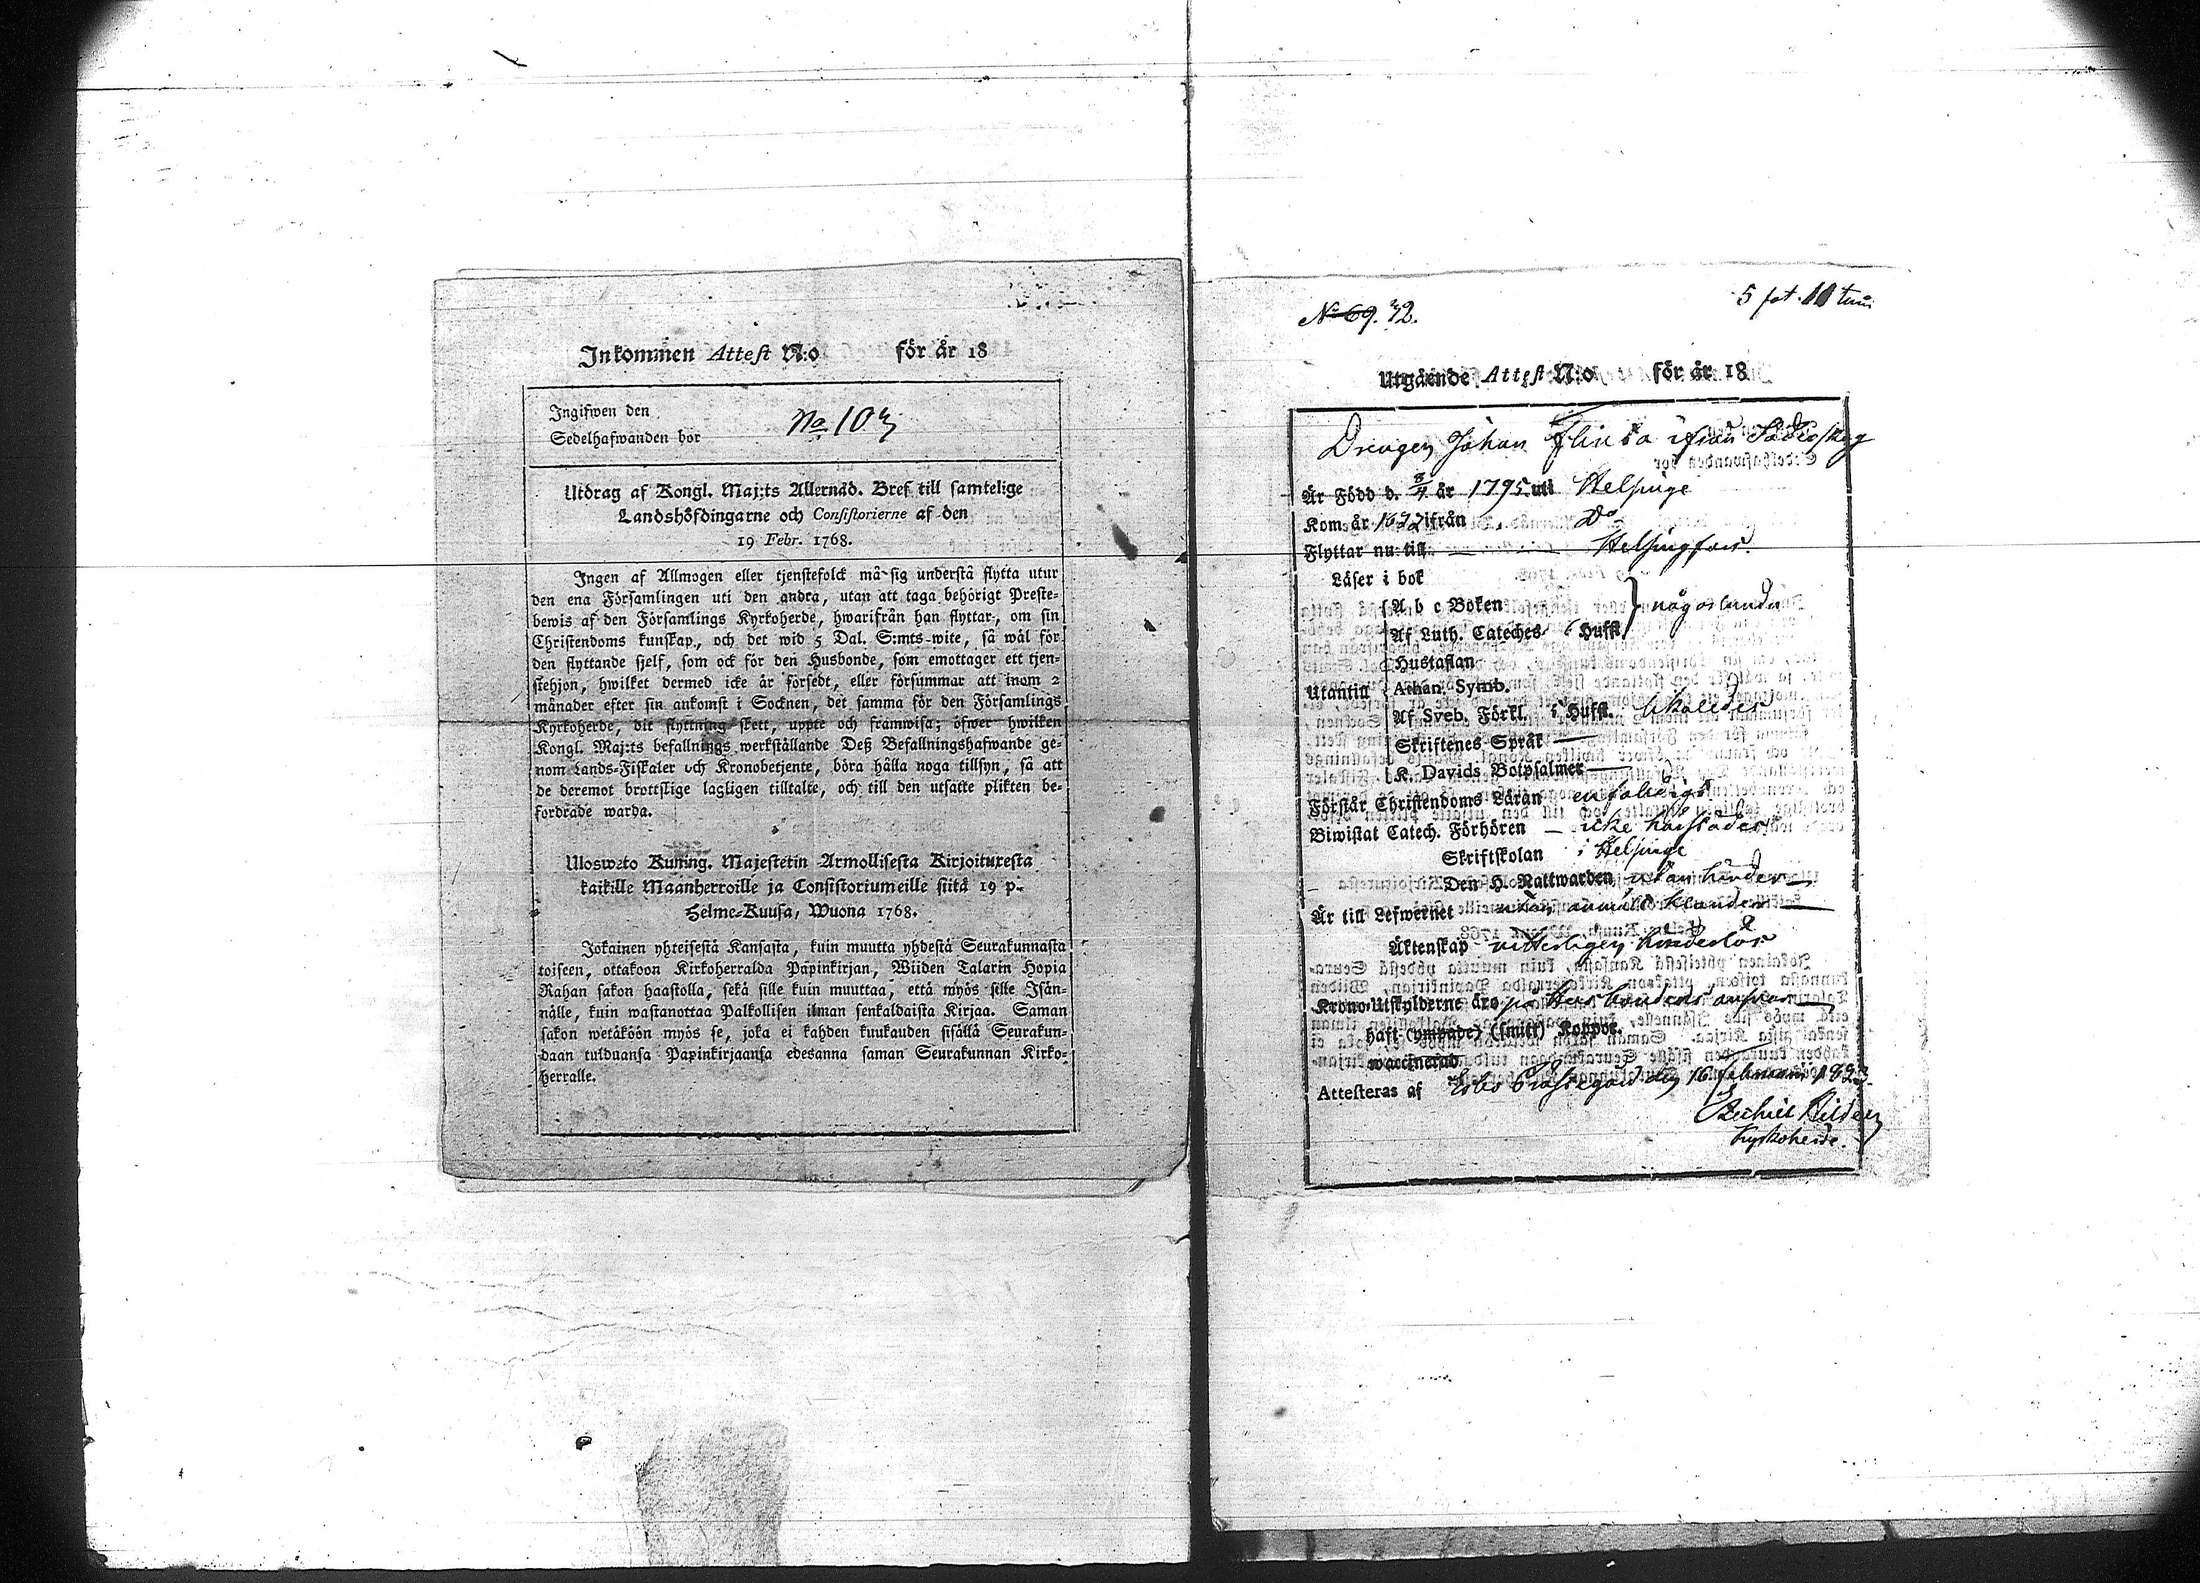 Inkommen Attest N:o för år 18
Ingifwen den
No 103
Sedelhafwanden bor
Utdrag af Kongl. Maj:ts Allernåd. Bref till samtelige
Landshöfdingarne och Consistorierne af den
19 Febr. 1768.
Ingen af Allmogen eller tjenstefolck må sig understå flytta utur
den ena Församlingen uti den andra, utan att taga behörigt Preste-
bewis af den Församlings Kyrkoherde, hwarifrån han flyttar, om sin
Christendoms kunskap, och det wid 5 Dal. S:mts wite, så wäl för
den flyttande sjelf, som ock för den Husbonde, som emottager ett tjen-
stehjon, hwilket dermed icke är försedt, eller försummar att inom 2
månader efter sin ankomst i Socknen, det samma för den Församlings
Kyrkoherde, dit flyttning skett, uppte och framwisa; öfwer hwilken
Kongl. Maj:ts befallnings werkställande Deß Befallningshafwande ge-
nom Lands-Fiskaler och Kronobetjente, böra hålla noga tillsyn, så att
de deremot brottslige lagligen tilltalte, och till den utsatte plikten be-
fordrade warda.
Ulosweto Kuning. Majestetin Armollisesta Kirjoituresta
kaikille Maanherroille ja Consistoriumeille siitä 19 p.
Helme-Kuusa, Wuona 1768.
Jokainen yhteisestä Kansasta, kuin muutta yhdestä Seurakunnasta
toiseen, ottakoon Kirkoherralda Papinkirjan, Wiiden Talarin Hopia
Rahan sakon haastolla, sekä sille kuin muuttaa, että myös sille Isän-
nälle, kuin wastanottaa Palkollisen ilman senkaldaista Kirjaa. Saman
sakon wetäköön myös se, joka ei kahden kuukauden sisällä Seurakun-
daan tulduansa Papinkirjaansa edesanna saman Seurakunnan Kirko-
herralle.
No 69. 42.
5 fot 10 tum
Utgående Attest N:o för år 18
Drengen Johan Flinta ifrån Söderskog
Är Född d. 8/4 år 1795 uti Helsinge
Kom år 1822 ifrån Do
Flyttar nu till Helsingfors.
Läser i bok
A b c Boken
någorlunda
Af Luth. Cateches Husfl
Hustaflan
Utantill
Athan. Symb.
Af Sveb. Förkl. i Husfl.
Skriftenes Språk
K. Davids Botpsalmer
Förstår Christendoms Läran enfaldigt
Biwistat Catech. Förhören icke härstädes
Skriftskolan i Helsinge
Den H. Nattwarden utan hinder
Är till Lefwernet utan anmält klander
Äktenskap vetterligen hinderlös
Krono-Utskylderne äro på Husbondens answar
haft (ympade) (smitt) Koppor.
waccinerad
Attesteras af Esbo Prästegård den 16 februari 1823.
Kyrkoherde.